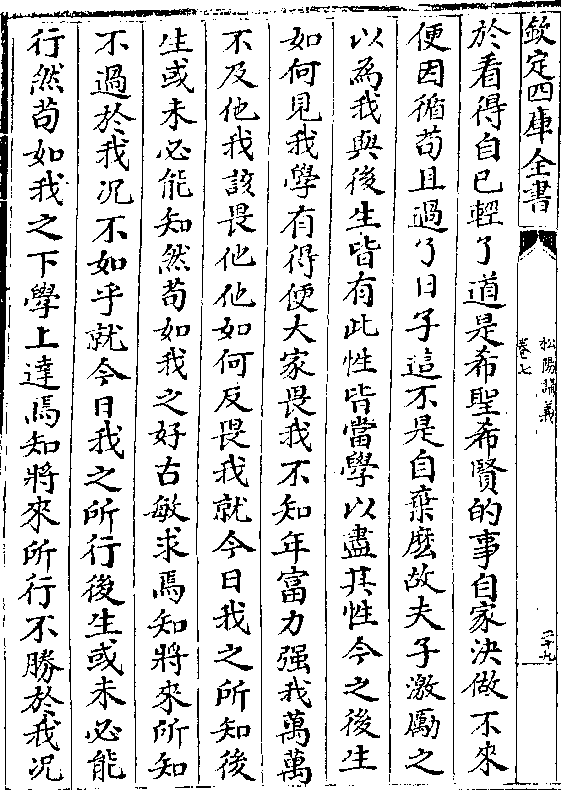 欽定四庫全書
松陽講義
卷七
二十九
於看得自己輕了道是希聖希賢的事自家決做不來
便因循苟且過了日子這不是自棄麽故夫子激勵之
以為我與後生皆有此性皆當學以盡其性今之後生
如何見我學有得便大家畏我不知年富力强我萬萬
不及他我該畏他他如何反畏我就今日我之所知後
生或未必能知然苟如我之好古敏求焉知將來所知
不過於我况不如乎就今日我之所行後生或未必能
行然苟如我之下學上達焉知將來所行不勝於我况